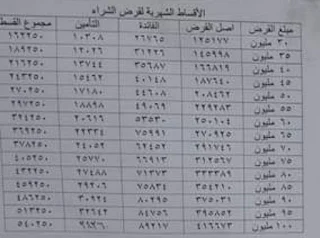 الأقساط الشهرية لقرض الشراء
مبلغ القرض اصل القرض الفائدة التأمين مجموع القسط
٣٠ مليون ١٢٥١٧٧ ٢٦٧٦٥ ١٠٣٠٨ ١٦٢٢٥٠
٣٥ مليون ١٤٥٩٩٨ ٣١٢٢٦ ١٢٠٢٦ ١٨٩٢٥٠
٤٠ مليون ١٦٦٨١٩ ٣٥٦٨٧ ١٣٧٤٤ ٢١٦٢٥٠
٤٥ مليون ١٨٧٦٤٠ ٤٠١٤٨ ١٥٤٦٢ ٢٤٣٢٥٠
٥٠ مليون ٢٠٨٤٦٢ ٤٤٦٠٨ ١٧١٨٠ ٢٧٠٢٥٠
٥٥ مليون ٢٢٩٢٨٣ ٤٩٠٦٩ ١٨٨٩٨ ٢٩٧٢٥٠
٦٠ مليون ٢٥٠١٠٤ ٥٣٥٣٠ ٢٠٦١٦ ٣٢٤٢٥٠
٦٥ مليون ٢٧٠٩٢٥ ٧٥٩٩١ ٢٢٣٣٤ ٣٦٩٢٥٠
٧٠ مليون ٢٩١٧٤٦ ٦٢٤٥٢ ٢٤٠٥٢ ٣٧٨٢٥٠
٧٥ مليون ٣١٢٥٦٧ ٦٦٩١٣ ٢٥٧٧٠ ٤٠٥٢٥٠
٨٠ مليون ٣٣٣٣٨٩ ٧١٣٧٣ ٢٧٤٨٨ ٤٣٢٢٥٠
٨٥ مليون ٣٥٤٢١٠ ٧٥٨٣٤ ٢٩٢٠٦ ٤٥٩٢٥٠
٩٠ مليون ٣٧٥٠٣١ ٨٠٢٩٥ ٣٠٩٢٤ ٤٨٦٢٥٠
٩٥ مليون ٣٩٥٨٥٢ ٨٤٧٥٦ ٣٢٦٤٢ ٥١٣٢٥٠
١٠٠ مليون ٤١٦٦٧٣ ٨٩٢١٧ ٥٤٠٢٥٠